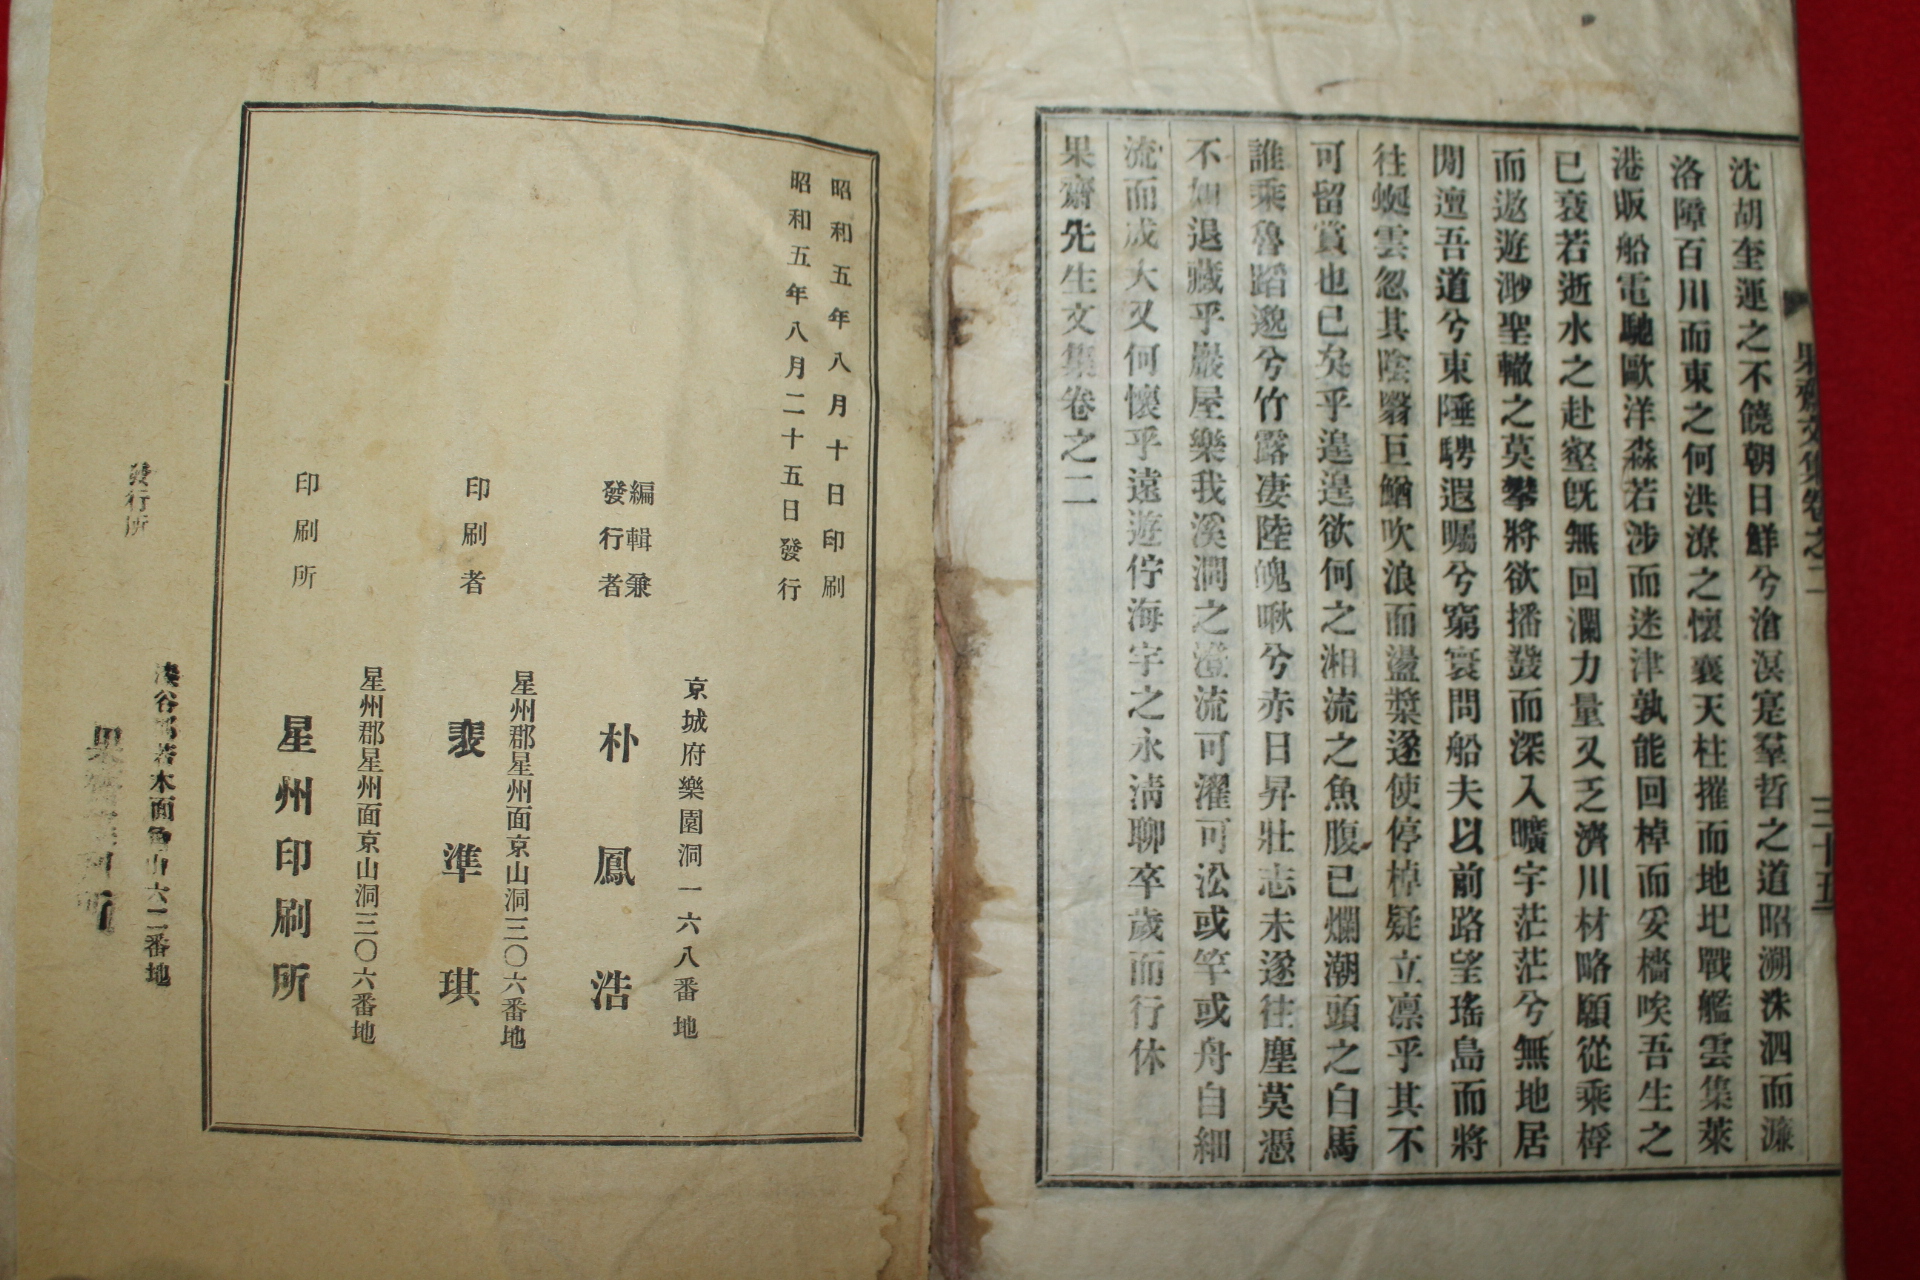 沈胡奎運之不饒朝日鮮兮滄溟寔羣哲之道昭溯洙泗而濂
洛障百川而東之何洪潦之懷襄天柱摧而地圯戰艦雲集萊
港販船電馳歐洋淼若涉而迷津孰能回棹而妥檣唉吾生之
已衰若逝水之赴壑旣無回瀾力量又乏濟川材略願從乘桴
而遨遊渺聖轍之莫攀將欲播鼗而深入曠宇茫茫兮無地居
閒澶吾道兮東陲騁遐矚兮窮寰問船夫以前路望瑤島而將
往蜿雲忽其陰翳巨鰌吹浪而盪槳遂使停棹疑立凛乎其不
可留賞也已矣乎遑遑欲何之湘流之魚腹已爛潮頭之白馬
誰乘魯蹈邈兮竹露凄陸魄啾兮赤日昇壯志未遂往塵莫憑
不如退藏乎巖屋樂我溪澗之澄流可濯可㳂或竿或舟自細
流而成大又何懷乎遠遊佇海宇之永淸聊卒歲而行休
果齋先生文集卷之二
果齋文集卷之二 三十五
昭和五年八月十日印刷
昭和五年八月二十五日發行
京城府樂園洞一六八番地
編輯兼
發行者 朴鳳浩
星州郡星州面京山洞三〇六番地
印刷者 裵準琪
星州郡星州面京山洞三〇六番地
印刷所 星州印刷所
谷 若木面 山六二番地
發行所 果齋 所